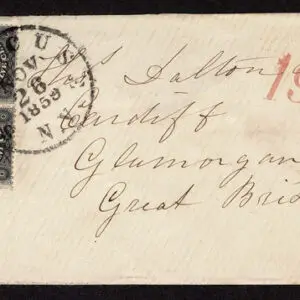 CUS
NOV
26
1859
N
Dalton
Cardiff
Glamorgan
Great Bri
19